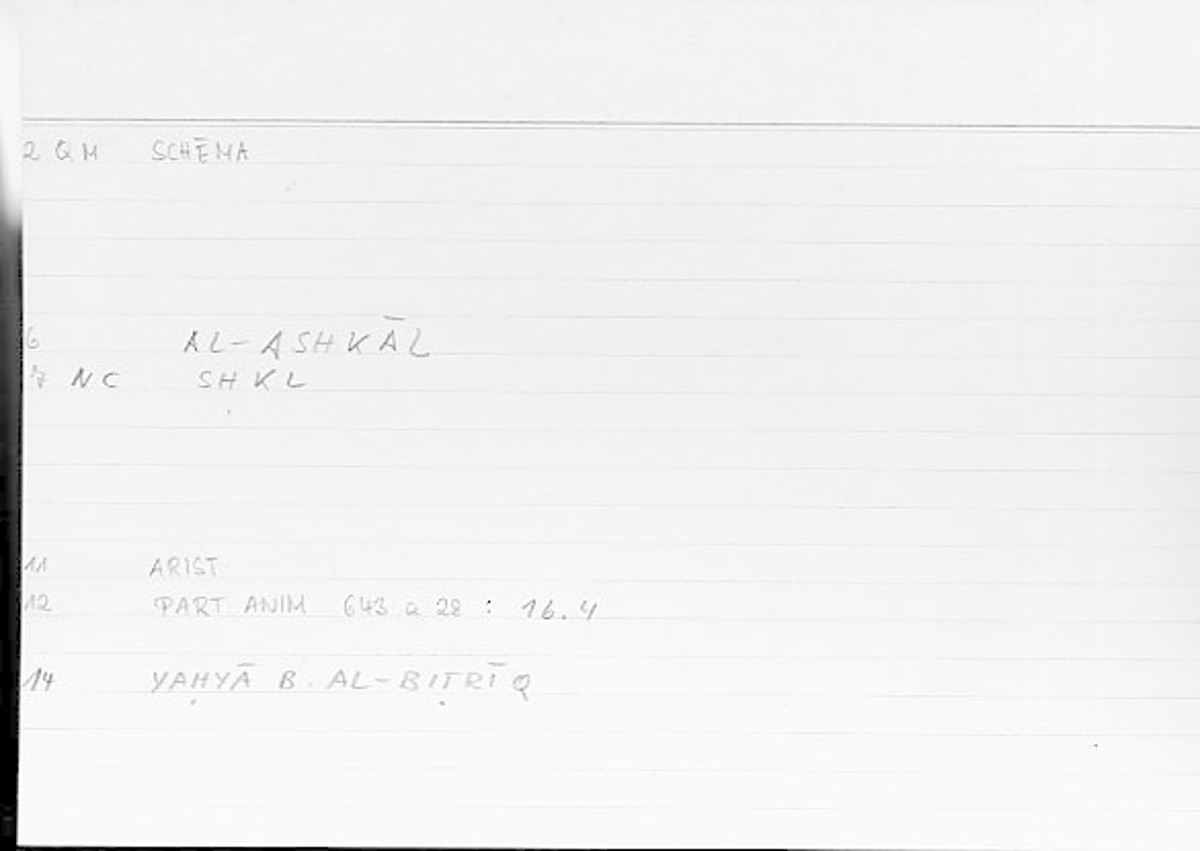 2 QM SCHĒMA
6 AL-ASHKĀL
7 NC SHKL
11 ARIST
12 PART ANIM 643 a 28 : 16.4
14 YAḤYĀ B. AL-BIṬRĪQ